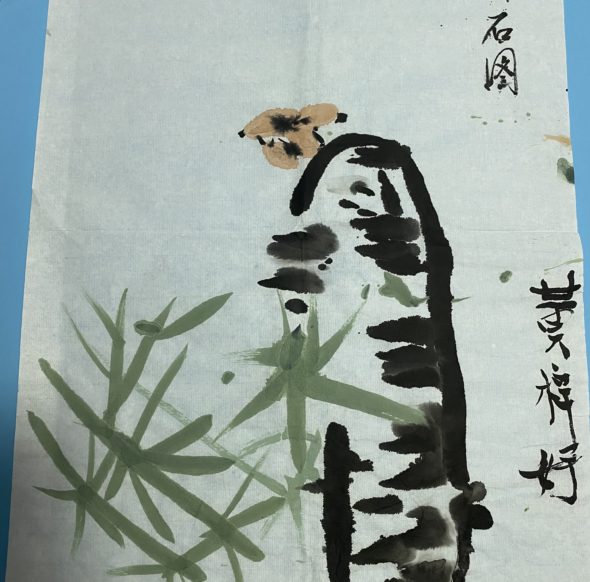 石图
黄梓妤